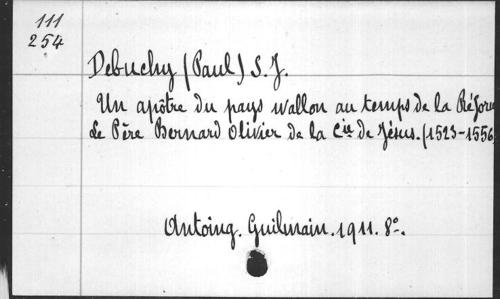 111
254
Debuchy (Paul) S. J.
Un apôtre du pays wallon au temps de la Réfor
Le Père Bernard Olivier de la Cie de Jésus. (1523-1556
Antoing. Guilmain. 1911. 8º.